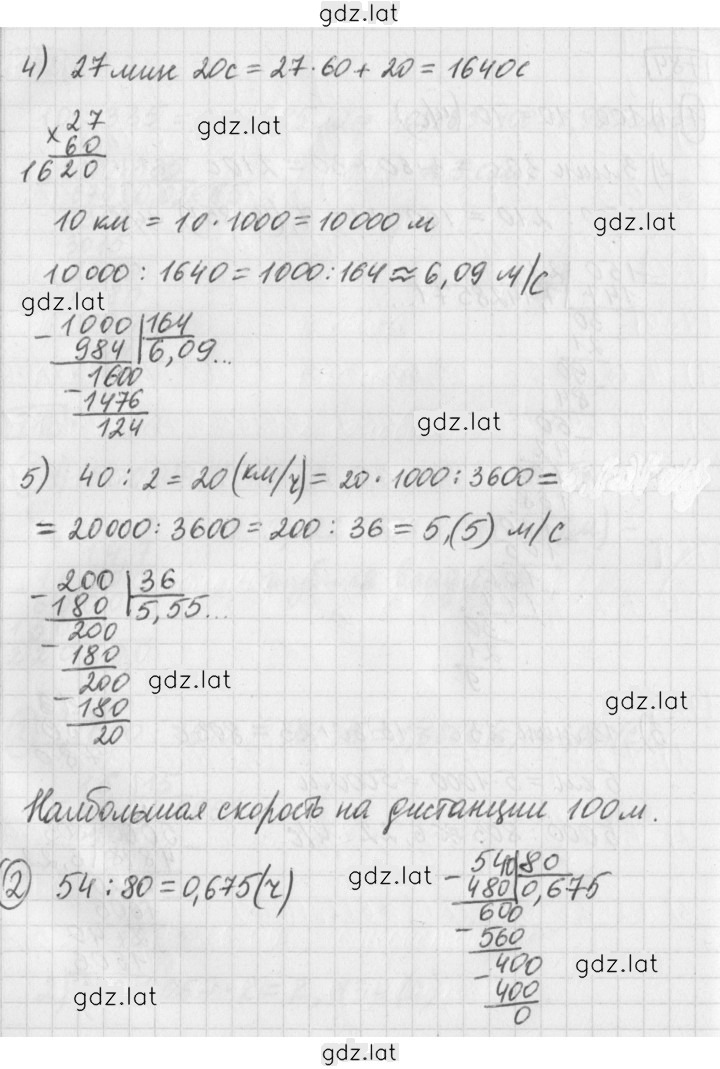 gdz.lat
4) 27 мин 20с = 27·60 + 20 = 1640с
× 27
60
gdz.lat
1620
10 км = 10·1000 = 10000 м
gdz.lat
10000 : 1640 = 1000 : 164 ≈ 6,09 м/с
gdz.lat
- 1000 | 164
984 | 6,09...
1600
- 1476
124
gdz.lat
5) 40 : 2 = 20 (км/ч) = 20·1000 : 3600 =
= 20000 : 3600 = 200 : 36 = 5,(5) м/с
- 200 | 36
180 | 5,55...
200
- 180
200
gdz.lat
- 180
gdz.lat
20
Наибольшая скорость на дистанции 100м.
2 54 : 80 = 0,675 (ч)
gdz.lat
- 540 | 80
480 | 0,675
600
- 560
400
gdz.lat
- 400
gdz.lat
0
gdz.lat